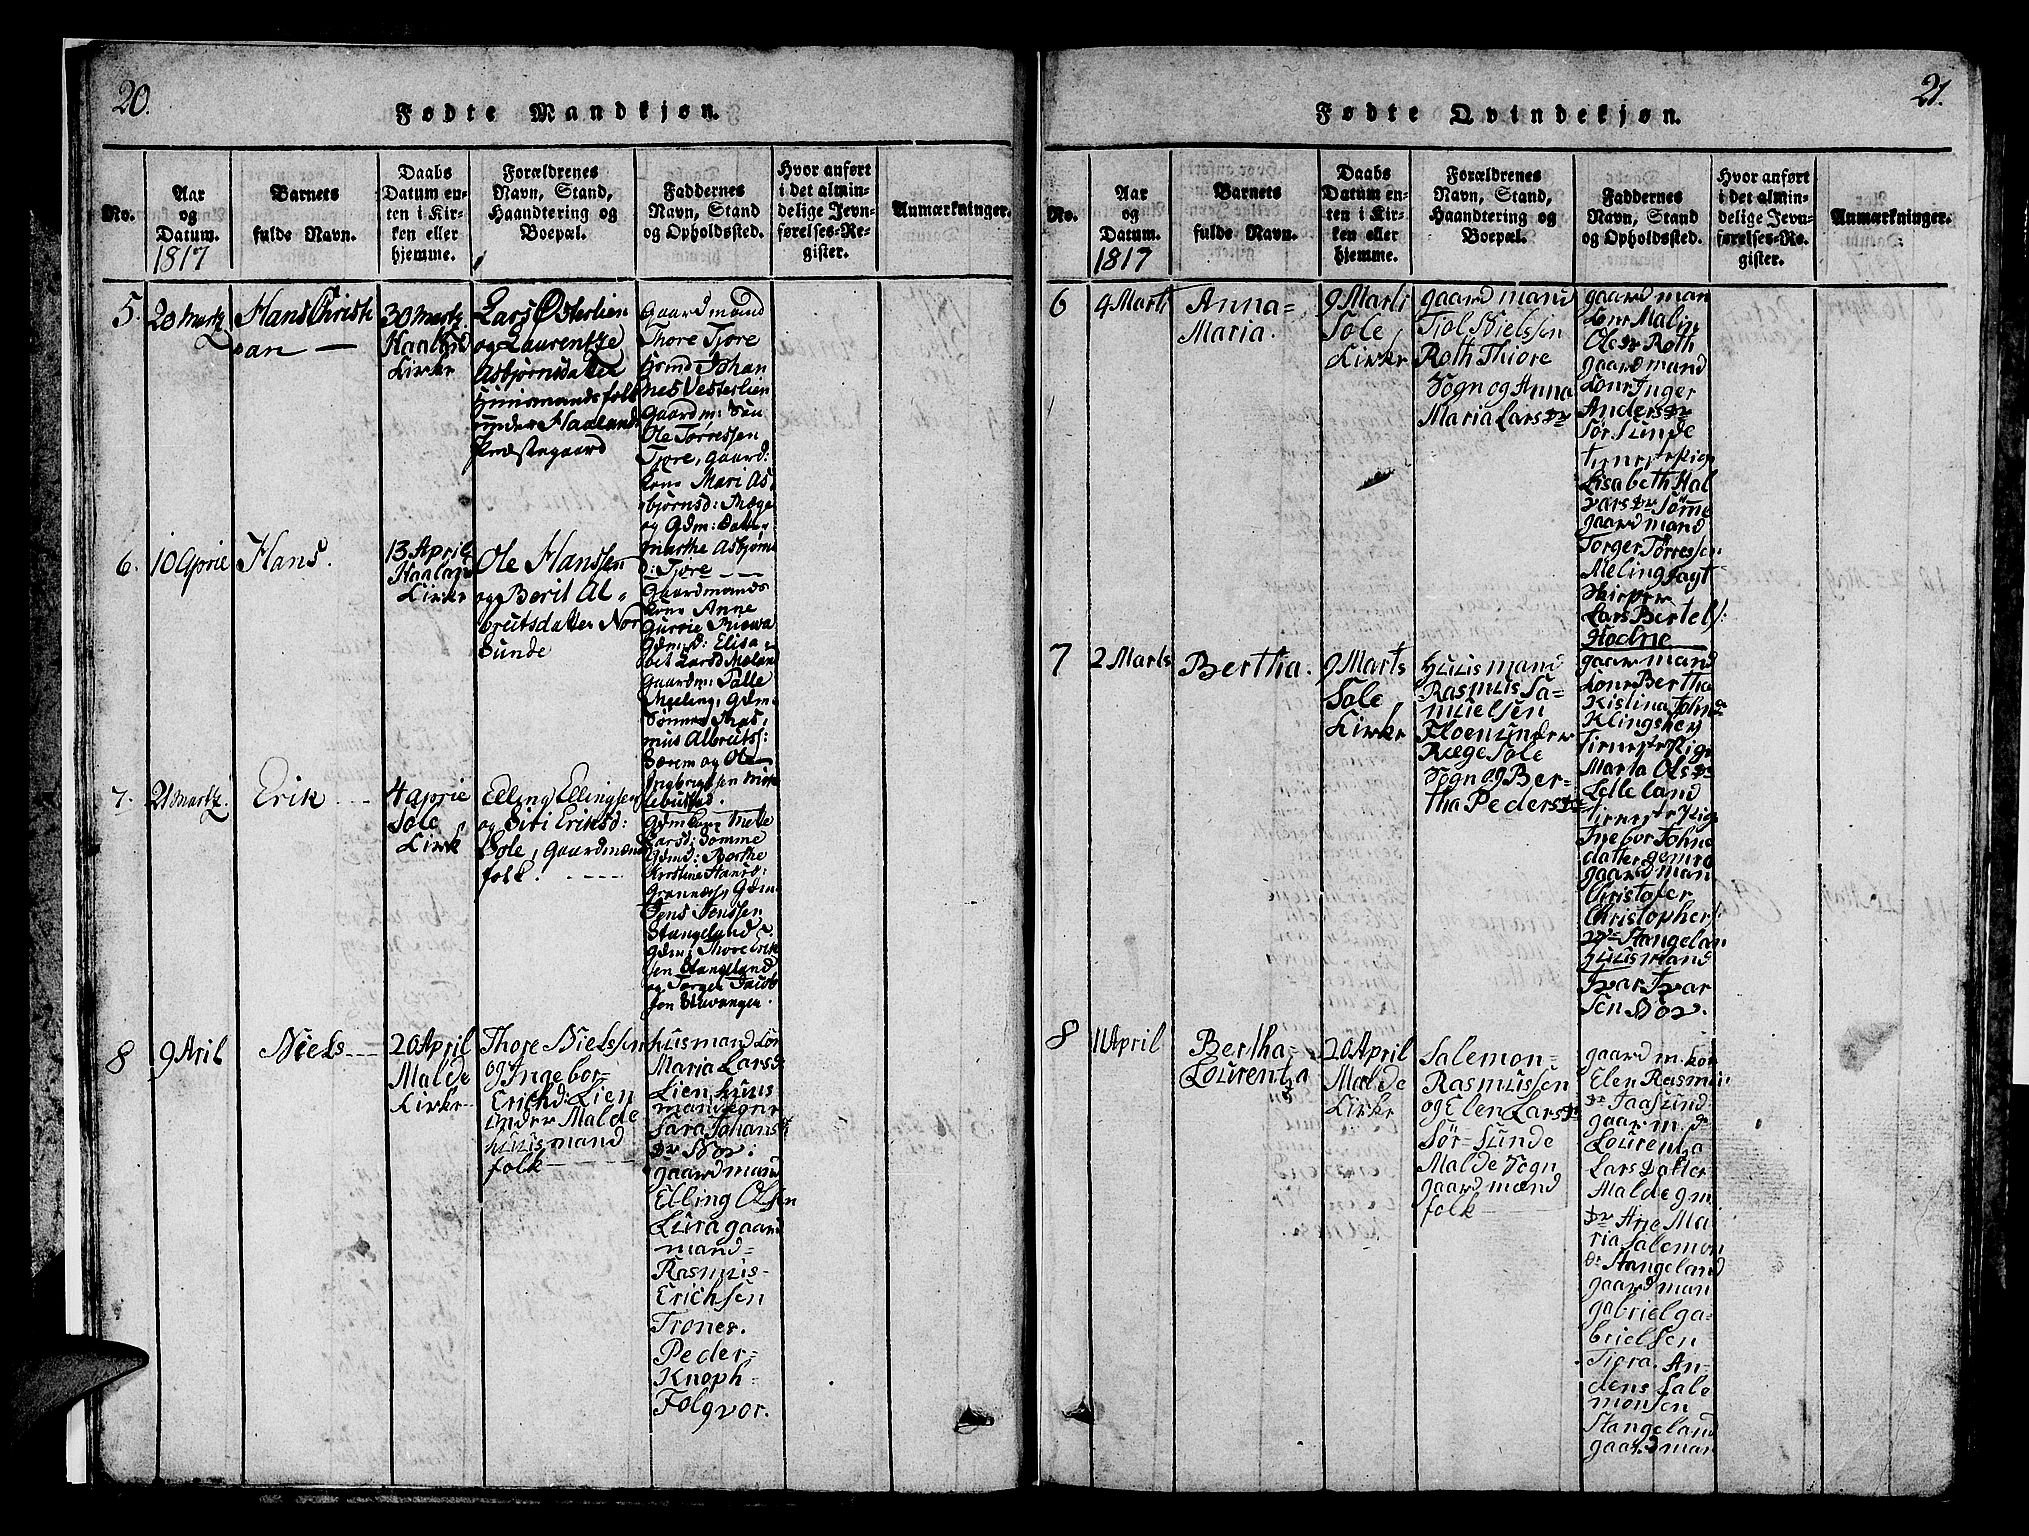 20.
Fødte Mandkjøn.
No.
Aar
og
Datum.
1817
Barnets
fulde Navn.
Daabs
Datum en-
ten i Kir-
ken eller
hjemme.
Forældrenes
Navn, Stand,
Haandtering og
Boepæl.
Faddernes
Navn, Stand
og Opholdssted.
Hvor anført
i det almin-
delige Jevn-
førelses-Re-
gister.
Anmærkninger.
5.
20 Martz
Hans Christi
an —
30 Martz.
Haaland
Kirke
Lars Østerlien
og Laurentze
Asbjørnsdatter
Huusmandsfolk
under Haalands
Præstegaard
Gaardmand
Thore Tjore
Johan
nes Vesterlien
Gaardm: Søn
Ole Tørressen
Tjore, Gaard:
kone Mari As
bjørnsd: Ræge
og Gdm: Datter
Marthe Asbjørns
d: Tjore
6.
10 Aprie
Hans.
13 April
Haaland
Kirke
Ole Hanssen
og Berit Al-
breitsdatter Nor
Sunde
Gaardmands
kone Anne
Gurrie
Gdmd: Elisa-
bet Larsd Meling
Gaardm: Talle
Meling, Gdm:
Sønnen Ras,
mus Albreits:
Sørem og Ole
Ingbrigtsen
7.
21 Martz.
Erik
4 Aprie
Sole
Kirk
Elling Ellingsen
og Siri Eriksd:
Sole, Gaardmænd
folk.
Gdmkone Mette
Larsd: Sømme
Gdmd: Berthe
Kirstine Hansd:
Grannæss Gdm
Jens Jonssen
Stangeland
Gdm: Thore Erik
sen Stangeland
og Torger Jacob
sen Stavanger.
8
9 Aril
Niels
20 April
Malde
Kirke
Thore Nielssen
og Ingebor-
Erichd: Lien
under Malde
huusmand
folk
husmand Kon
Maria Larsd
Lien huus
mand
Sara Johans
Dr Nox:
gaardmand
Elling Olsen
Lura gaard
mand-
Rasmus-
Erichsen
Trones.
Peder-
Knoph-
Folgvor.
21.
Fødte Qvindekjøn.
No.
Aar
og
Datum.
1817
Barnets
fulde Navn.
Daabs
Datum en-
ten i Kir-
ken eller
hjemme.
Forældrenes
Navn, Stand,
Haandtering og
Boepæl.
Faddernes
Navn, Stand
og Opholdssted.
Hvor anført
i det almin-
delige Jevn-
førelses-Re-
gister.
Anmærkninger.
6
4 Marti
Anna-
Maria.
9 Marti
Sole
Kirke
gaardmand
Tiol Nielssen
Roth Thiore
Sogn og Anna
Maria Lars Dr
gaardman
kone Malin
Oles Dr Roth
gaardmand
kone Inger
Anders Dr
Sør Sunde
tieneste Pige
Lisabeth Hal
vars Dr Sömme
gaardmand
Torger Tørressen
Meling
Lars Bertels:
Hodne
7
2 Marts
Bertha.
9 Marts
Sole
Kirke
Huusmand
Rasmus Sa-
muelsen
Floen under
Ræge Sole
Sogn og Ber-
tha Peders Dr
gaarmand
kone Bertha
Kistina John Dr
Klingshey
tieneste Pige
Marta Ols Dr
Lelleland
tieneste Pige
Ingebor Johns
datter
gaardmand
Christofer
Christophers:
Stangelan
Huusmand
Ivar Ivar
sen Nox.
8
11 April
Bertha-
Lourentza
20 April
Malde
Kirke
Salemon-
Rasmussen
og Elen Lars Dr
Sör-Sunde
Malde Sogn
gaardmænd
folk
gaard m. kon
Elen Rasmus
Dr Taasund:
gaar m. d
Lourentza
Lars Datter
Malde g m.
Dr Ane Ma
ria Salemon
Dr Stangeland
gaardman
gabriel ga-
brielsen
Tiora. An-
dens Sale
monsen
Stangeland
gaardman